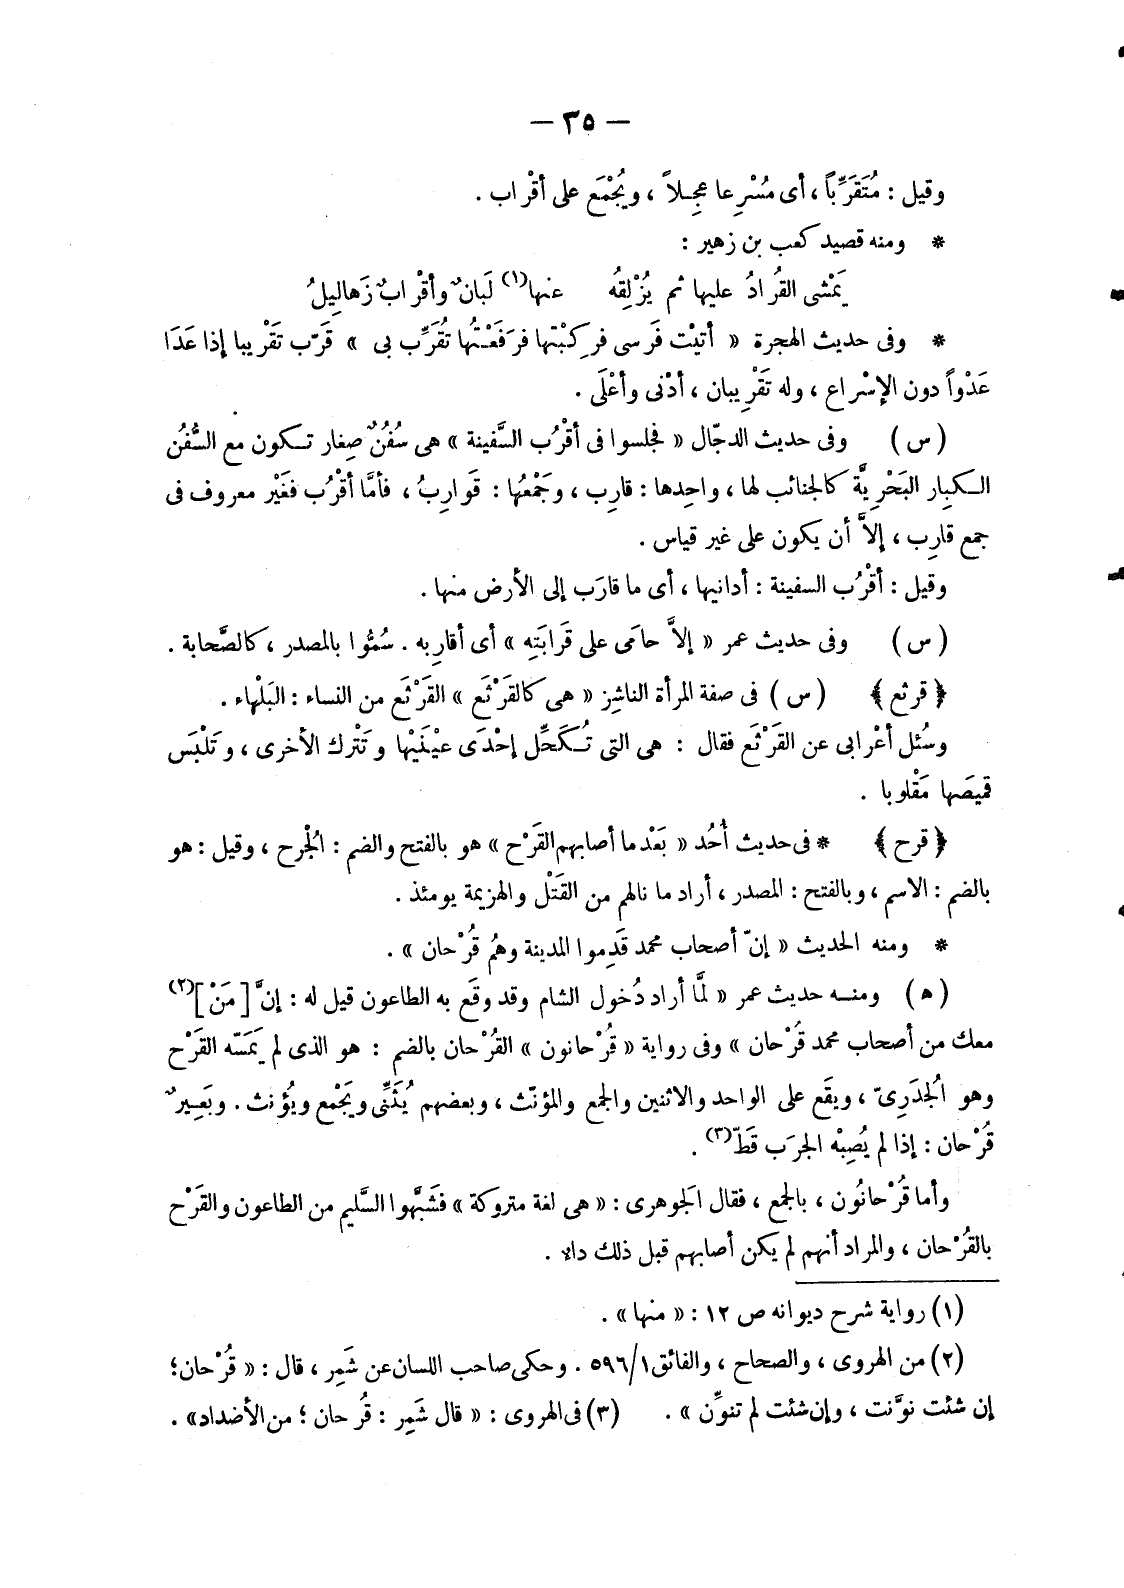 — ٣٥ —
وقيل : مُتَقَرِّباً ، أى مُسْرِعا عجِلاً ، ويُجْمَع على أقْراب .
* ومنه قصيد كعب بن زهير :
يَمْشى القُرادُ عليها ثم يُزْلِقُه عنها(١) لَبَانٌ وأقْرابٌ زَهالِيلُ
* وفى حديث الهجرة « أتيْت فَرسى فركِبْتها فرَفَعْتُها تُقَرِّب بى » قَرّب تقَرْيبا إذا عَدَا
عَدْواً دون الإسْراع ، وله تَقَرْيبان ، أدْنى وأعْلَى .
(س) وفى حديث الدجّال « فجلسوا فى أقْرُب السَّفينة » هى سُفُنٌ صِغار تكون مع السُّفُن
الكبِار البَحْرِيَّة كالجنائب لها ، واحِدها : قارِب ، وجَمْعُها : قَوارِبُ ، فأمَّا أقْرُب فغَيْر معروف فى
جمع قارِب ، إلاَّ أن يكون على غير قياس .
وقيل : أقْرُب السفينة : أدانيها ، أى ما قارَب إلى الأرض منها .
(س) وفى حديث عمر « إلاَّ حامَى على قَرابَتِه » أى أقارِبه . سُمُّوا بالمصدر ، كالصَّحابة .
﴿ قرثع ﴾ (س) فى صفة المرأة الناشِز « هى كالقَرْثَع » القَرْثَع من النساء : البَلْهاء .
وسُئل أعْرابى عن القَرْثَع فقال : هى التى تُكَحِّل إحْدَى عيْنَيْها وتَتْرك الأخرى ، وتَلْبَس
قميصَها مَقْلوبا .
﴿ قرح ﴾ * فى حديث أُحُد « بَعْد ما أصابهم القَرْح » هو بالفتح والضم : الجُرْح ، وقيل : هو
بالضم : الاسم ، وبالفتح : المصدر ، أراد ما نالهم من القَتْل والهزيمة يومئذ .
* ومنه الحديث « إنّ أصحاب محمد قَدِموا المدينة وهُم قُرْحان » .
(ه) ومنه حديث عمر « لمَّا أراد دُخول الشام وقد وقَع به الطاعون قيل له : إنَّ [ مَنْ ](٢)
معك من أصحاب محمد قُرْحان » وفى رواية « قُرْحانون » القُرْحان بالضم : هو الذى لم يَمَسّه القَرْح
وهو الجُدَرِىّ ، ويقَع على الواحد والاثنين والجمع والمؤنّث ، وبعضهم يُثَنِّى ويَجْمع ويُؤنث . وبَعِيرٌ
قُرْحان : إذا لم يُصِبْه الجرَب قَطّ(٣) .
وأما قُرْحانُون ، بالجمع ، فقال الجَوهرى : « هى لغة متروكة » فشَبَّهوا السَّليم من الطاعون والقَرْح
بالقُرْحان ، والمراد أنهم لم يكن أصابهم قبل ذلك داء .
(١) رواية شرح ديوانه ص ١٢ : « منها » .
(٢) من الهروى ، والصحاح ، والفائق ١/٥٩٦ . وحكى صاحب اللسان عن شَمِر ، قال : « قُرْحان ؛
إن شئت نوَّنت ، وإن شئت لم تنوِّن » . (٣) فى الهروى : « قال شَمِر : قُرحان ؛ من الأضداد » .